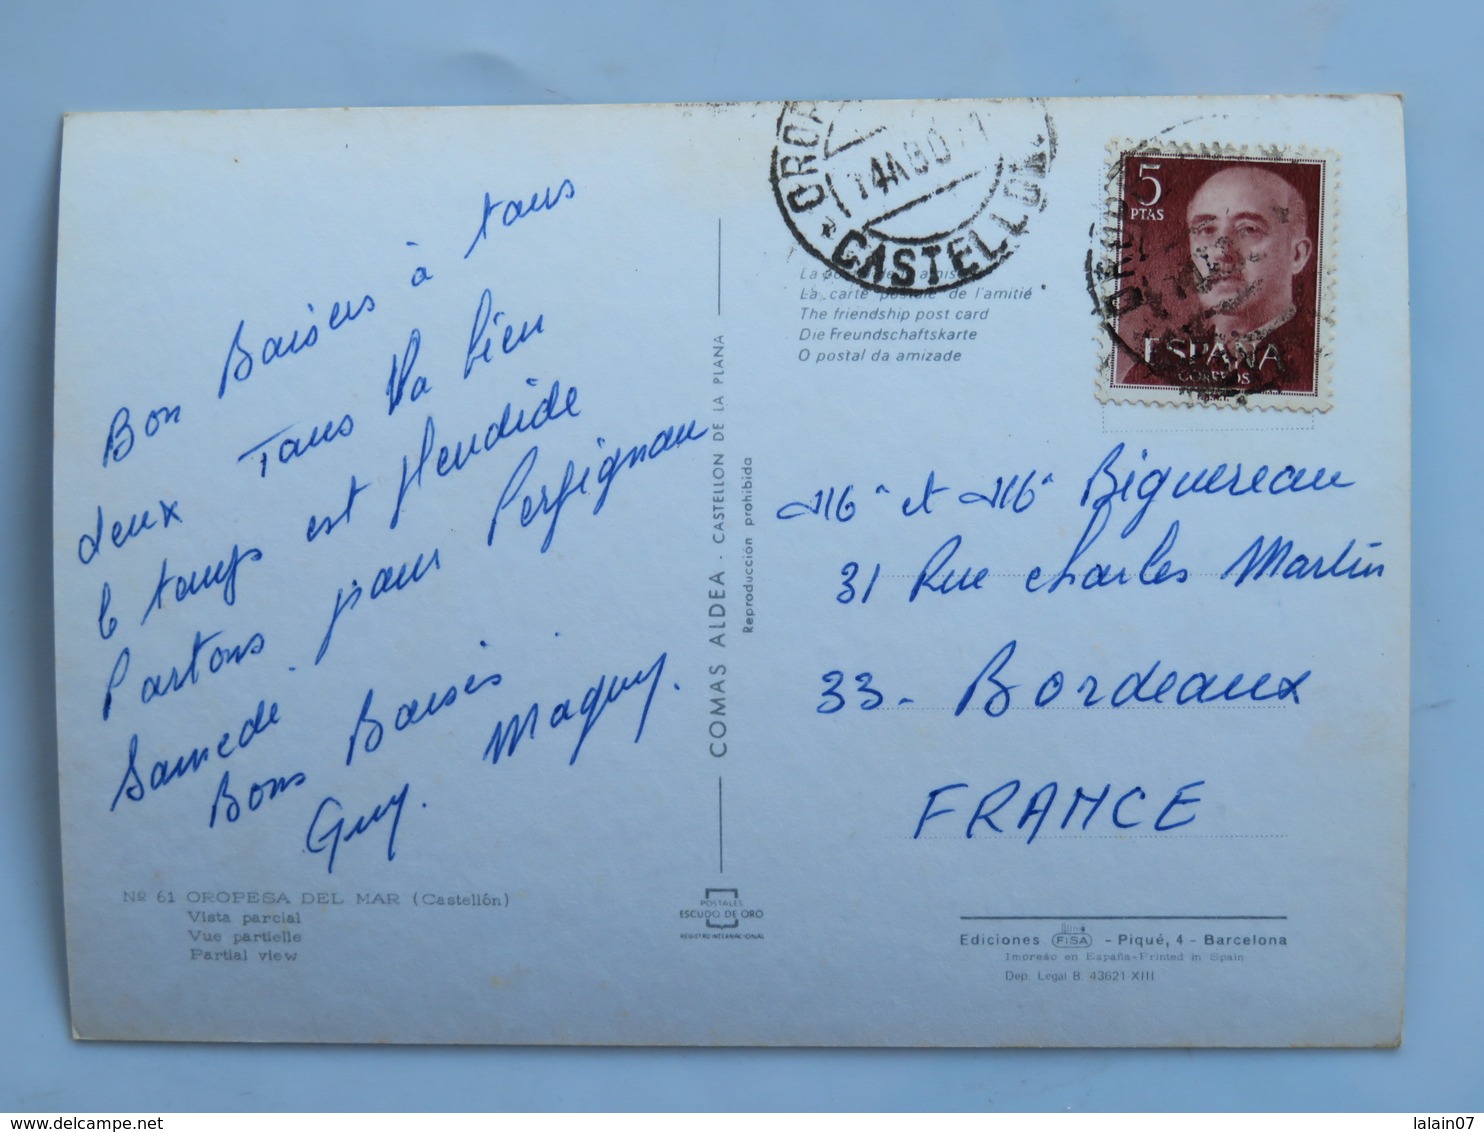 Bon Baisers à tous
deux Tous Va bien
le temps est splendide
Partons pour Perpignan
Samedi.
Bons Baisés
Guy. Maguy.
Nº 61 OROPESA DEL MAR (Castellón)
Vista parcial
Vue partielle
Partial view
COMAS ALDEA - CASTELLON DE LA PLANA
Reproducción prohibida
POSTALES
ESCUDO DE ORO
REGISTRO INTERNACIONAL
14 AGO 71
* CASTELLON
La carte postale de l'amitié
The friendship post card
Die Freundschaftskarte
O postal da amizade
5
PTAS
ESPAÑA
CORREOS
et Biguereau
31 Rue charles Martin
33- Bordeaux
FRANCE
Ediciones FISA - Piqué, 4 - Barcelona
Impreso en España-Printed in Spain
Dep. Legal B. 43621-XIII
lalain07